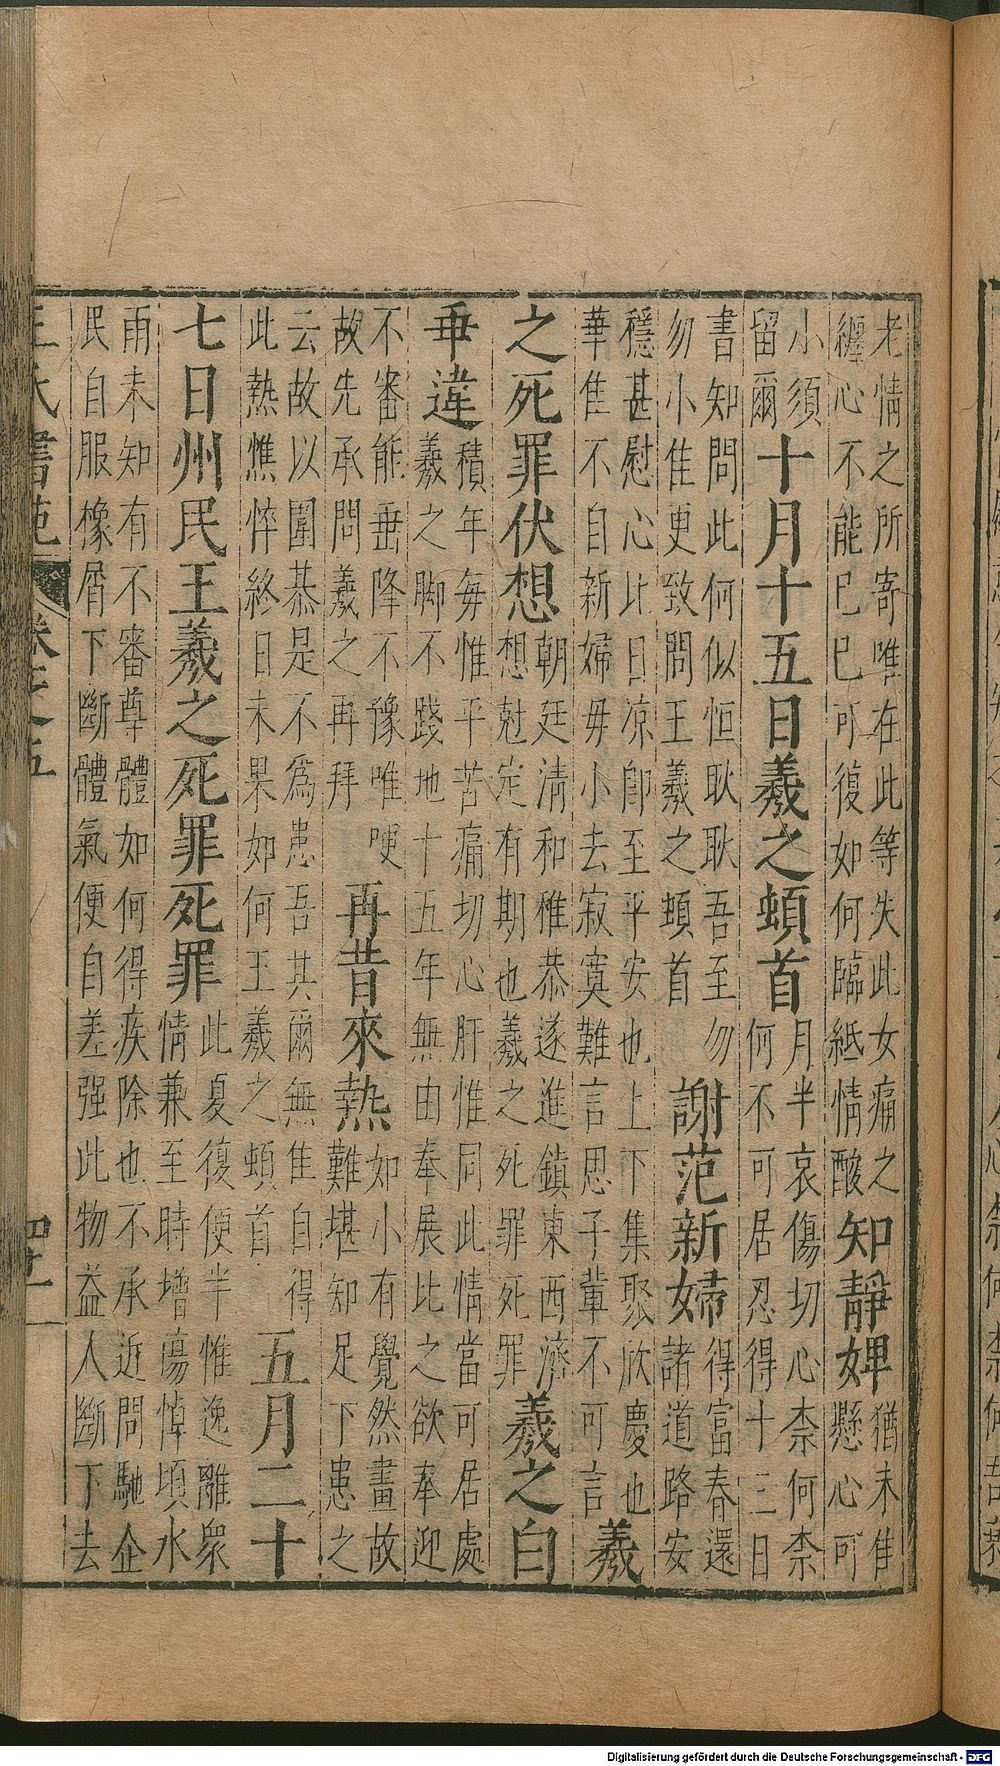 老情之所寄唯在此等失此女痛之
纏心不能已已可復如何臨紙情酸
知靜婢
猶未隹
懸心可
小須
留爾
十月十五日羲之頓首
月半哀傷切心柰何柰
何不可居忍得十三日
書知問此何似恒耿耿吾至勿
勿小隹更致問王羲之頓首
謝范新婦
得富春還
諸道路安
穩甚慰心比日凉卽至平安也上下集聚欣慶也
華隹不自新婦毋小去寂寞難言思子輩不可言
羲
之死罪伏想
朝廷清和稚恭遂進鎮東西濟
想尅定有期也羲之死罪死罪
羲之白
乖違
積年每惟乖苦痛切心肝惟同此情當可居處
羲之脚不踐地十五年無由奉展比之欲奉迎
不審能垂降不豫唯哽
故先承問羲之再拜
再昔來熱
如小有覺然晝故
難堪知足下患之
云故以圍棊是不爲患吾其爾無隹自得
此熱憔悴終日未果如何王羲之頓首
五月二十
七日州民王羲之死罪死罪
此夏復便半惟逸離衆
情兼至時增傷悼頃水
雨未知有不審尊體如何得疾除也不承近問馳企
民自服橡屑下斷體氣便自差强此物益人斷下去
王氏書苑 卷之五 四十一
Digitalisierung gefördert durch die Deutsche Forschungsgemeinschaft - DFG